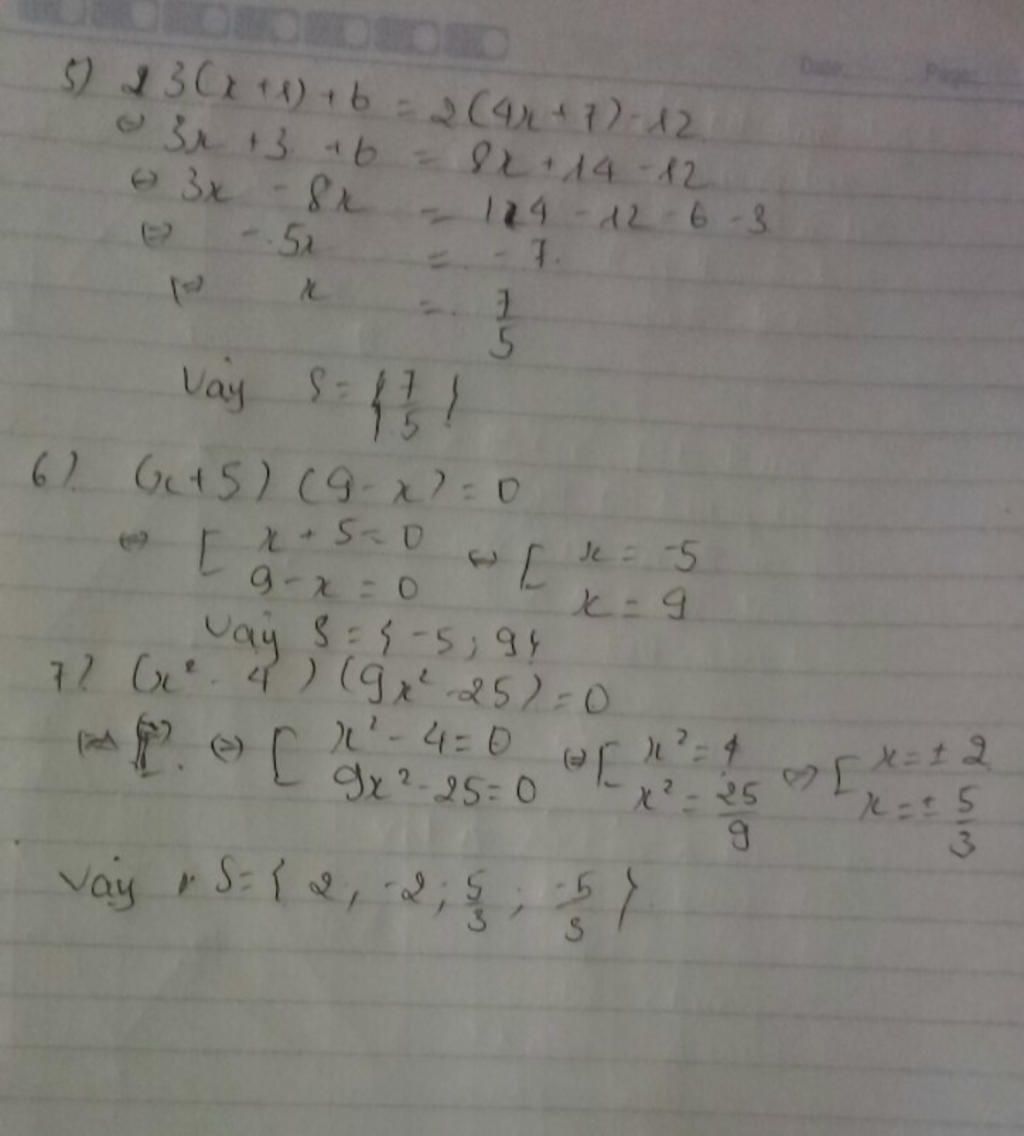 Date: Page:
5) 3(x+1)+6 = 2(4x+7)-12
⇔ 3x +3 +6 = 8x+14-12
⇔ 3x - 8x = 14 - 12 - 6 - 3
⇔ -5x = -7.
⇔ x = 7/5
Vậy S = {7/5}
6) (x+5) (9-x) = 0
⇔ [ x+5=0 ⇔ [ x = -5
9-x = 0 x = 9
Vậy S = {-5; 9}
7) (x² - 4) (9x² - 25) = 0
⇔ [ x² - 4 = 0 ⇔ [ x² = 4 ⇔ [ x = ± 2
9x² - 25 = 0 x² = 25/9 x = ± 5/3
Vậy S = { 2, -2; 5/3; -5/3 }